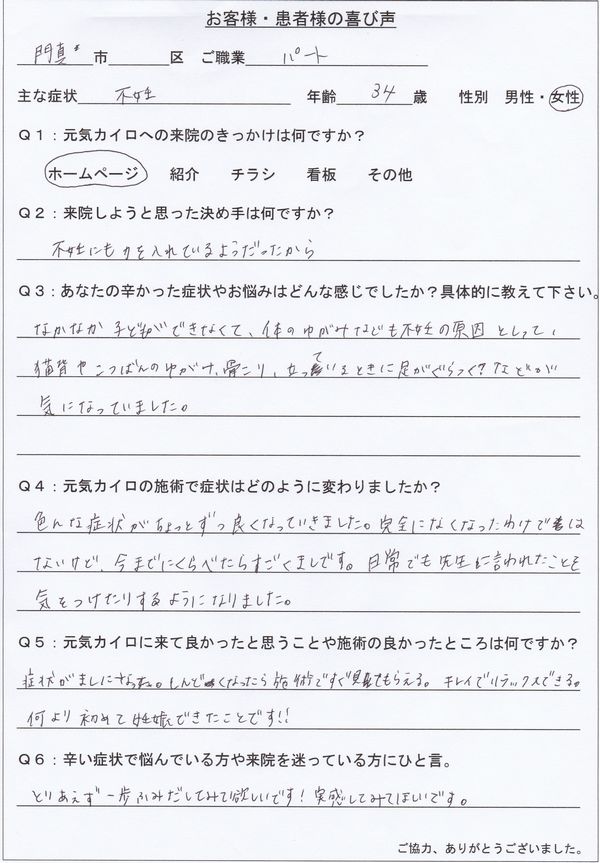 お客様・患者様の喜び声
門真市 区 ご職業 パート
主な症状 不妊 年齢 34 歳 性別 男性・女性
Q1:元気カイロへの来院のきっかけは何ですか?
ホームページ 紹介 チラシ 看板 その他
Q2:来院しようと思った決め手は何ですか?
不妊にも力を入れているようだったから
Q3:あなたの辛かった症状やお悩みはどんな感じでしたか?具体的に教えて下さい。
なかなか子どもができなくて、体のゆがみなども不妊の原因として、
猫背やこつばんのゆがみ、肩こり、立っているときに足がぐらつく?などが
気になっていました。
Q4:元気カイロの施術で症状はどのように変わりましたか?
色んな症状がちょっとずつ良くなっていきました。完全になくなったわけでは
ないけど、今までにくらべたらすごくましです。日常でも先生に言われたことを
気をつけたりするようになりました。
Q5:元気カイロに来て良かったと思うことや施術の良かったところは何ですか?
症状がましになった。しんどくなったら施術ですぐ見てもらえる。キレイでリラックスできる。
何より初めて妊娠できたことです!!
Q6:辛い症状で悩んでいる方や来院を迷っている方にひと言。
とりあえず一歩ふみだしてみて欲しいです!実感してみてほしいです。
ご協力、ありがとうございました。